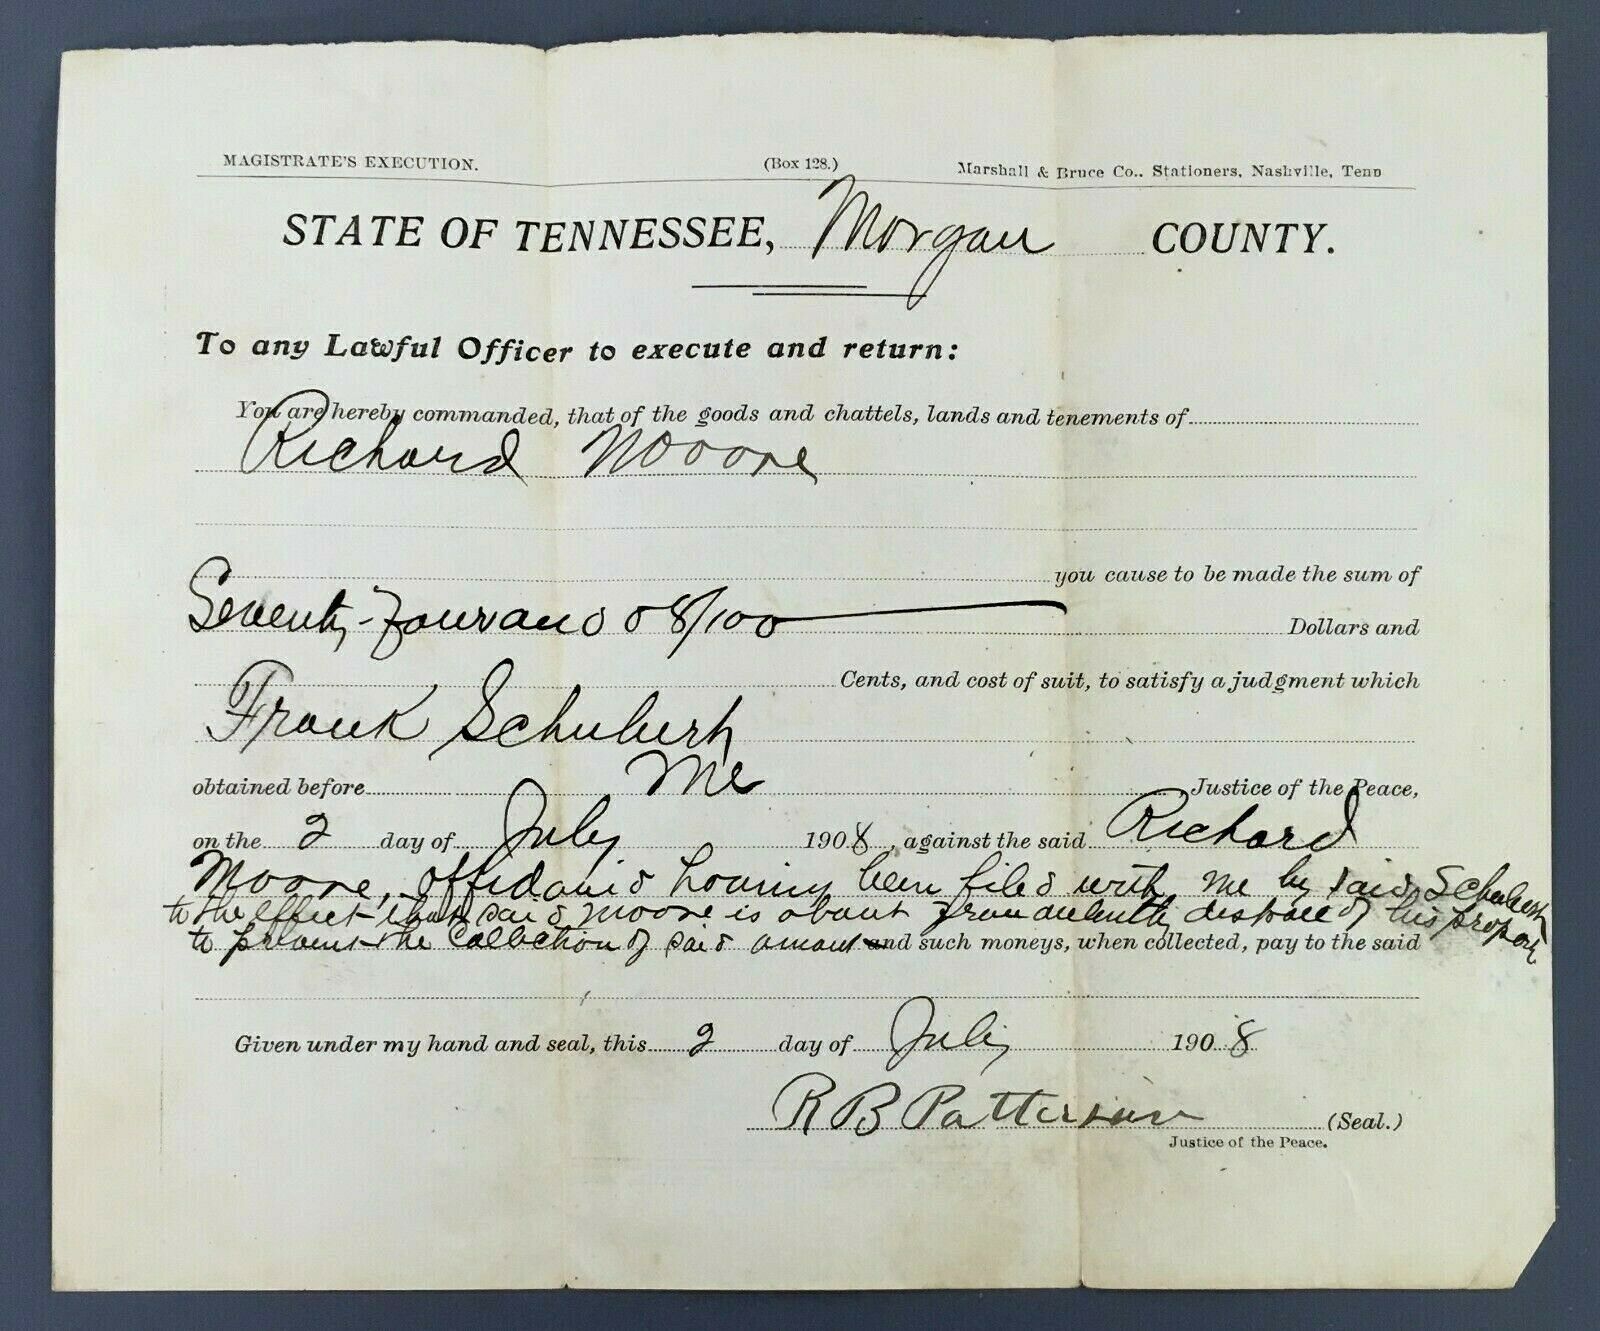 MAGISTRATE'S EXECUTION. (Box 128.) Marshall & Bruce Co.. Stationers, Nashville, Tenn
STATE OF TENNESSEE, Morgan COUNTY.
To any Lawful Officer to execute and return:
You are hereby commanded, that of the goods and chattels, lands and tenements of
Richard Moore
you cause to be made the sum of
Seventy-Four and 08/100 Dollars and
Cents, and cost of suit, to satisfy a judgment which
Frank Schubert
obtained before Me Justice of the Peace,
on the 2 day of July 1908, against the said Richard
Moore, affidavid having been filed with me by said Schubert
to the effect that said Moore is about fraudulently dispose of his property
to prevent the collection of said amount and such moneys, when collected, pay to the said
Given under my hand and seal, this 2 day of July 1908
R B Patterson (Seal.)
Justice of the Peace.